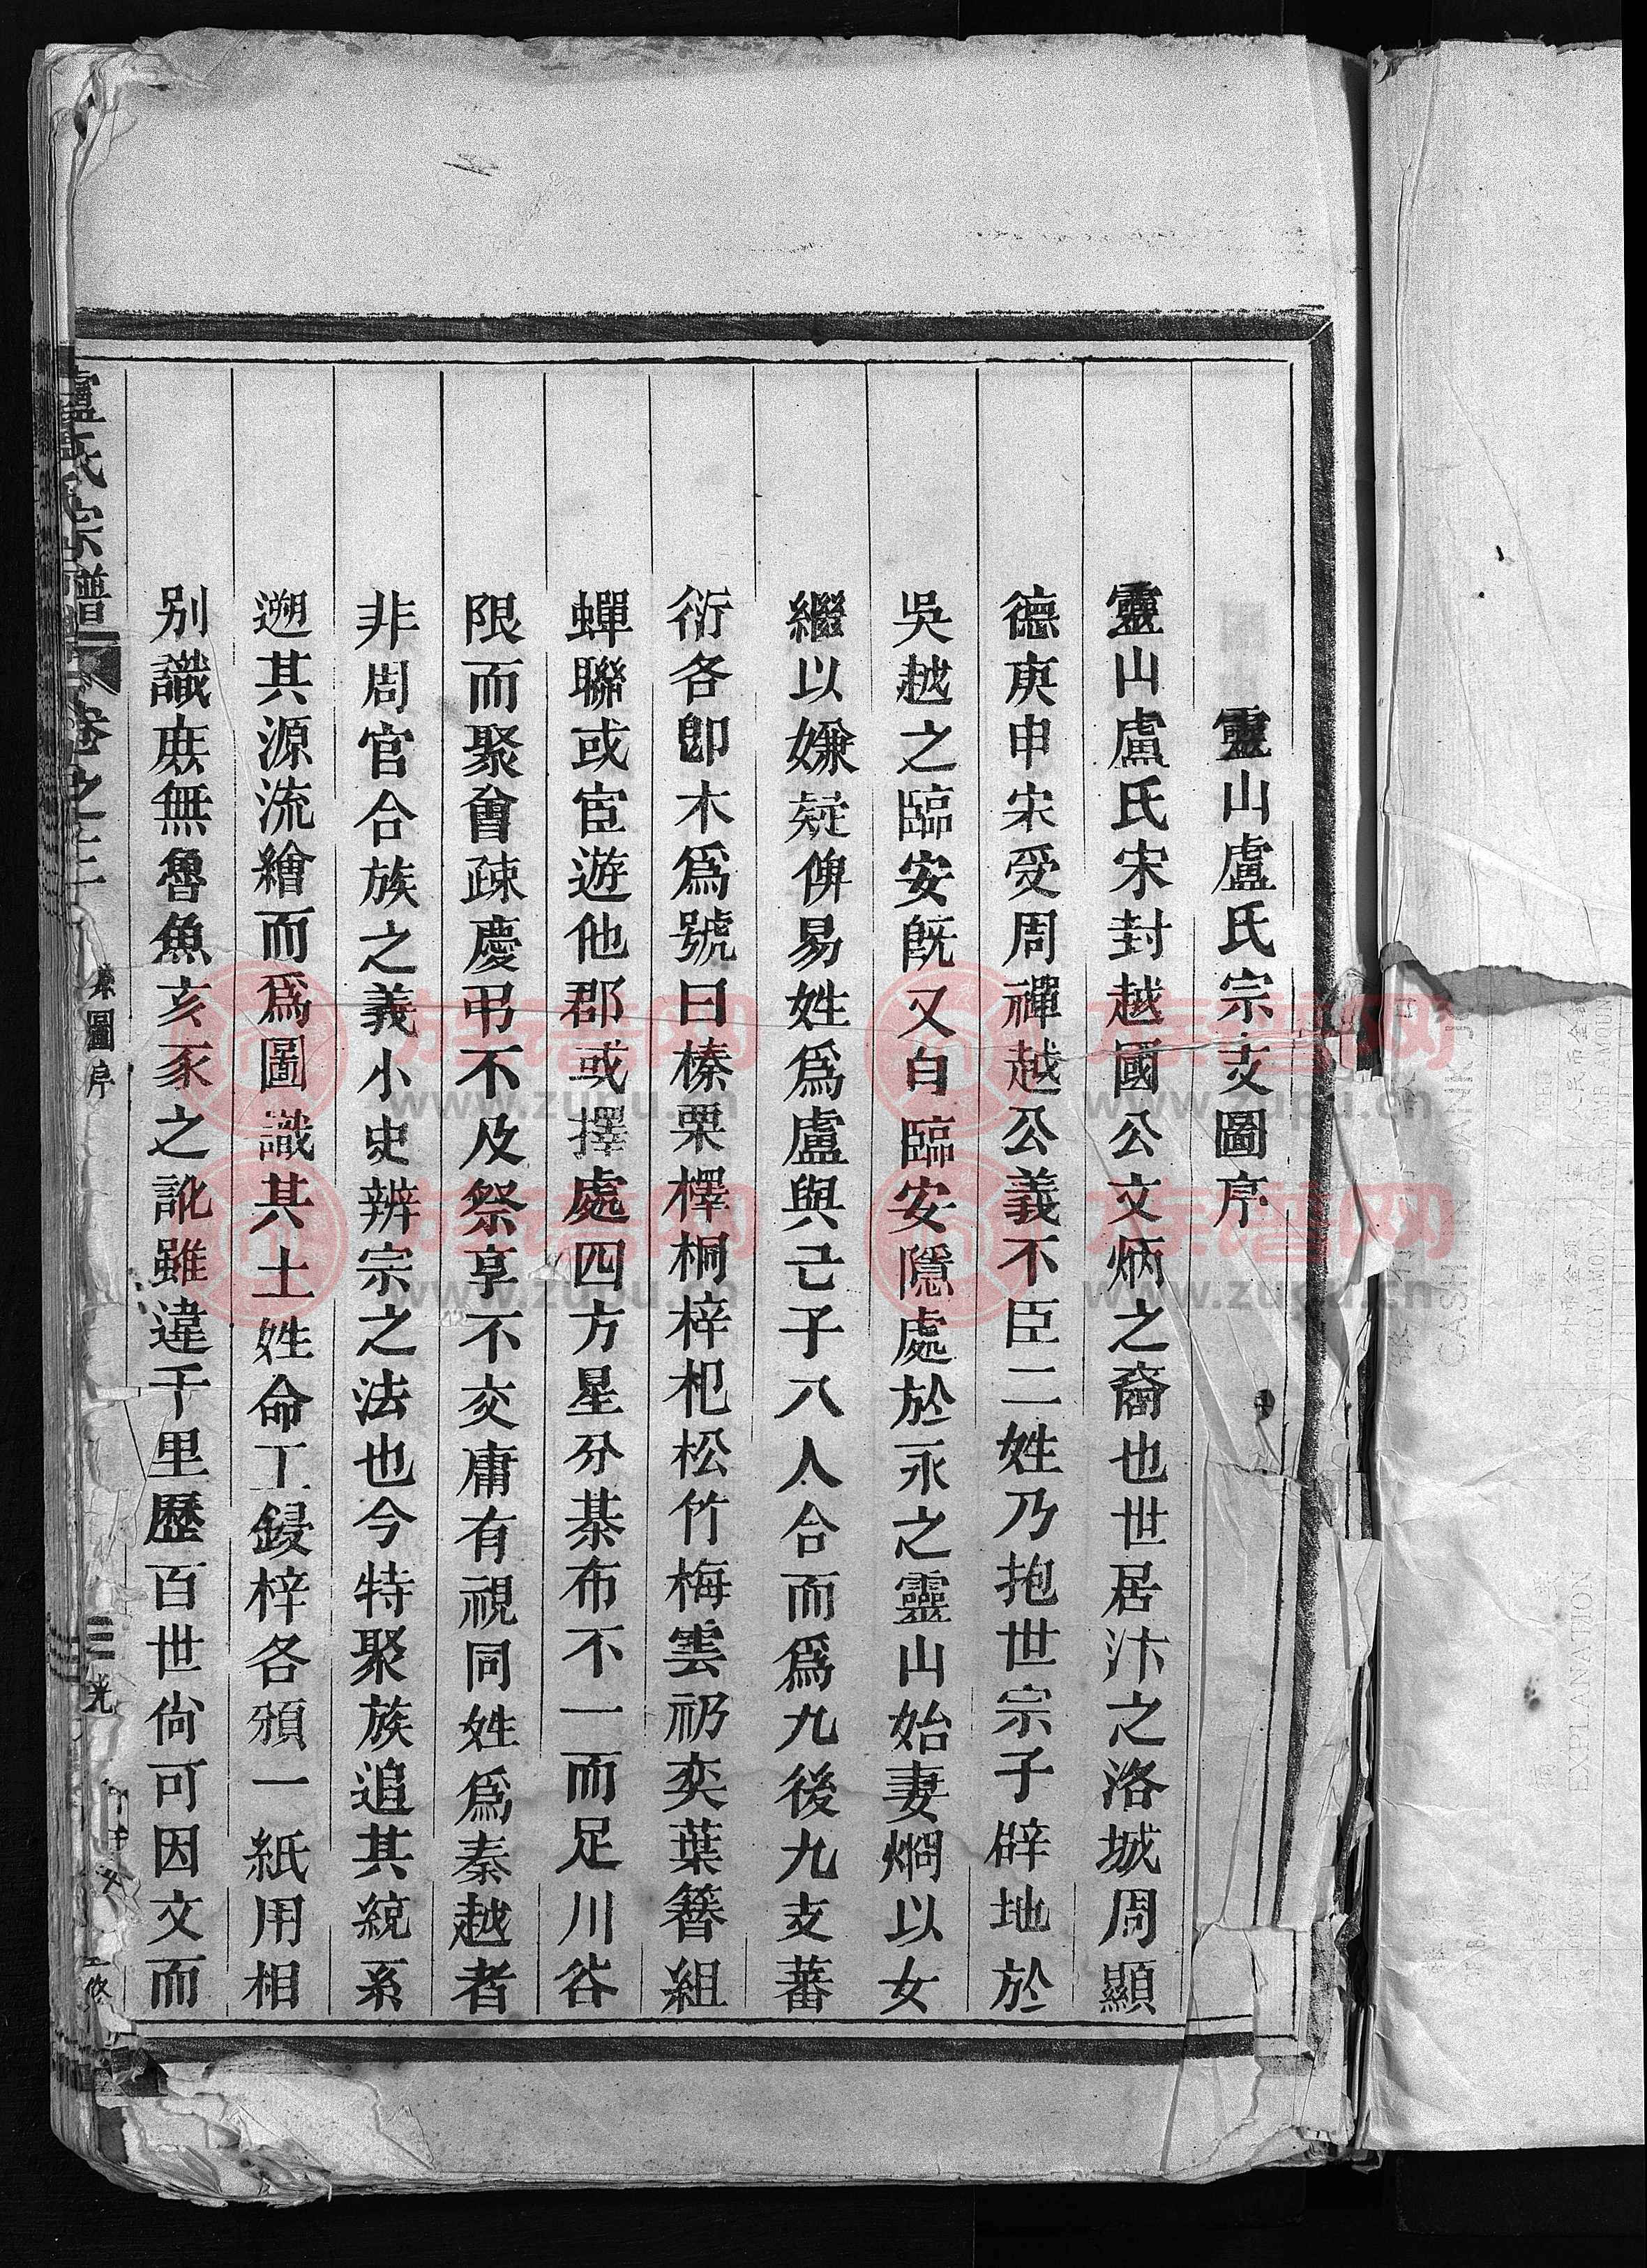 靈山盧氏宗支圖序
靈山盧氏宋封越國公文炳之裔也世居汴之洛城周顯
德庚申宋受周禪越公義不臣二姓乃抱世宗子辟地於
吳越之臨安旣又白臨安隱處於永之靈山始妻燜以女
繼以嫌疑俾易姓爲盧與己子八人合而爲九後九支蕃
衍各卽木爲號曰榛栗檡桐梓杞松竹梅雲礽奕葉簪組
蟬聯或宦遊他郡或擇處四方星分棊布不一而足川谷
限而聚會疎慶弔不及祭享不交庸有視同姓爲秦越者
非周官合族之義小史辨宗之法也今特聚族追其統系
遡其源流繪而爲圖識其土姓命工鋟梓各頒一紙用相
别識庶無魯魚亥豕之訛雖違千里歷百世尙可因文而
盧氏宗譜
卷之三
圖序
族谱网
www.zupu.cn
族谱网
www.zupu.cn
族谱网
www.zupu.cn
族谱网
www.zupu.cn
EXPLANATION